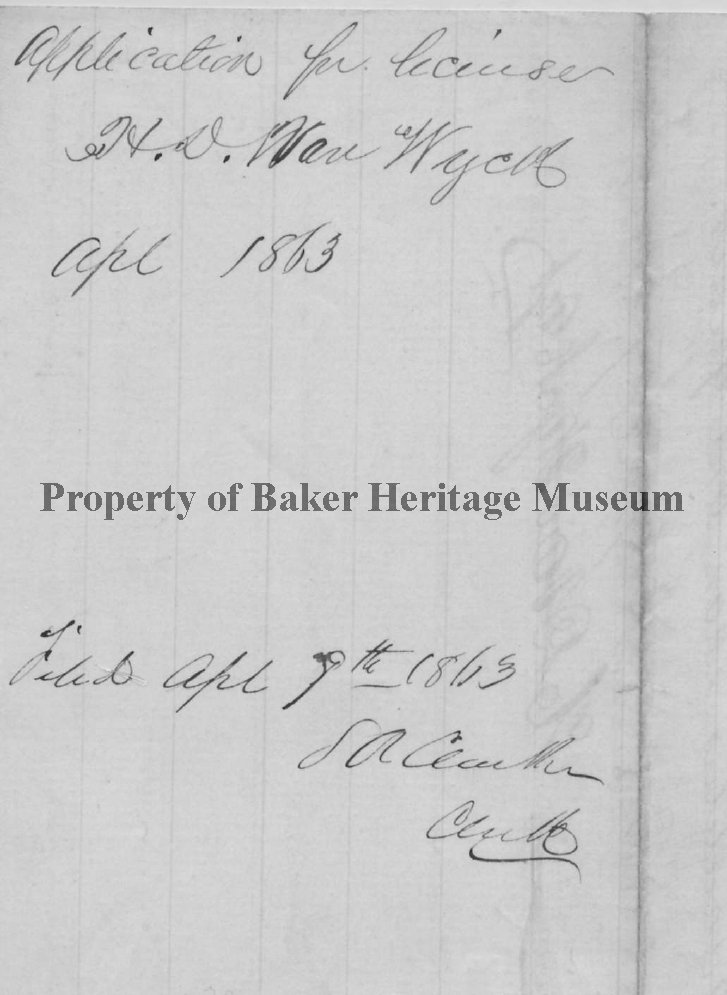 Application for license
H. D. Van Wyck
Apl 1863
Property of Baker Heritage Museum
Filed Apl 9th 1863
Clerk